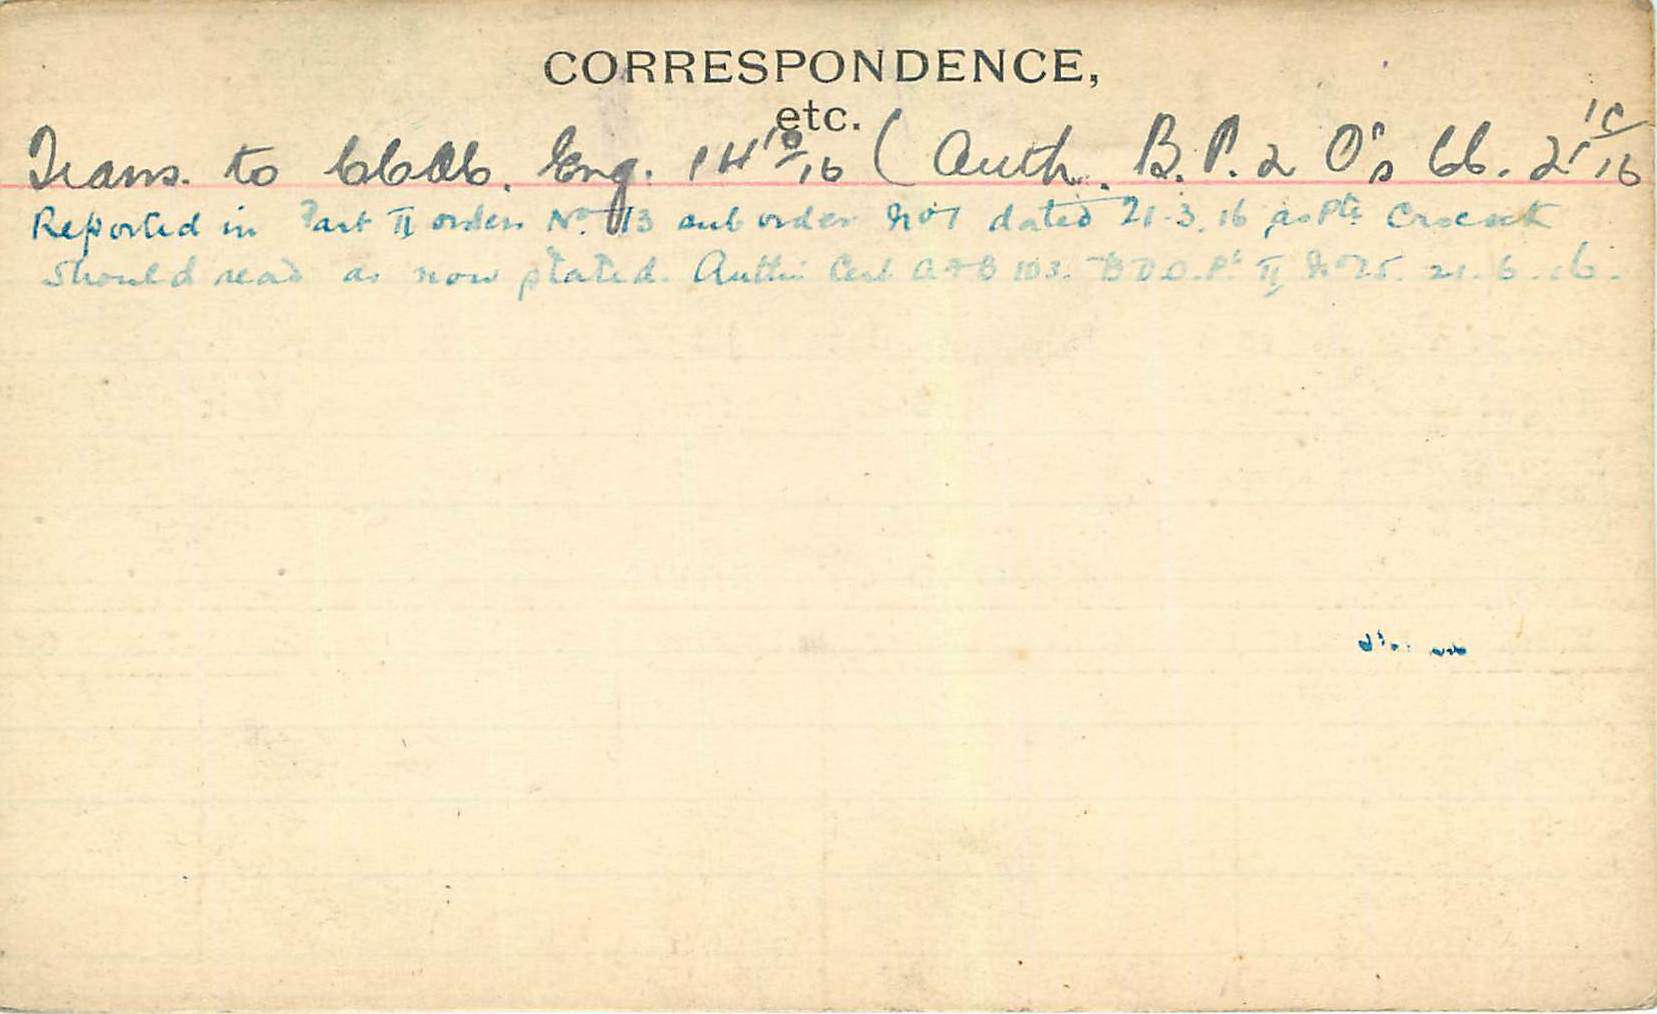 CORRESPONDENCE,
etc.
Trans. to CCAC. Eng. 14 10/16 (Auth. B.P. 2 O's 66. 21 10/16
Reported in Part II orders No. 13 sub order No 1 dated 21-3.16 as Pte
should read as now stated. Auth: Cert A+B 103. B D O. Pt II No 25. 21.6.16.